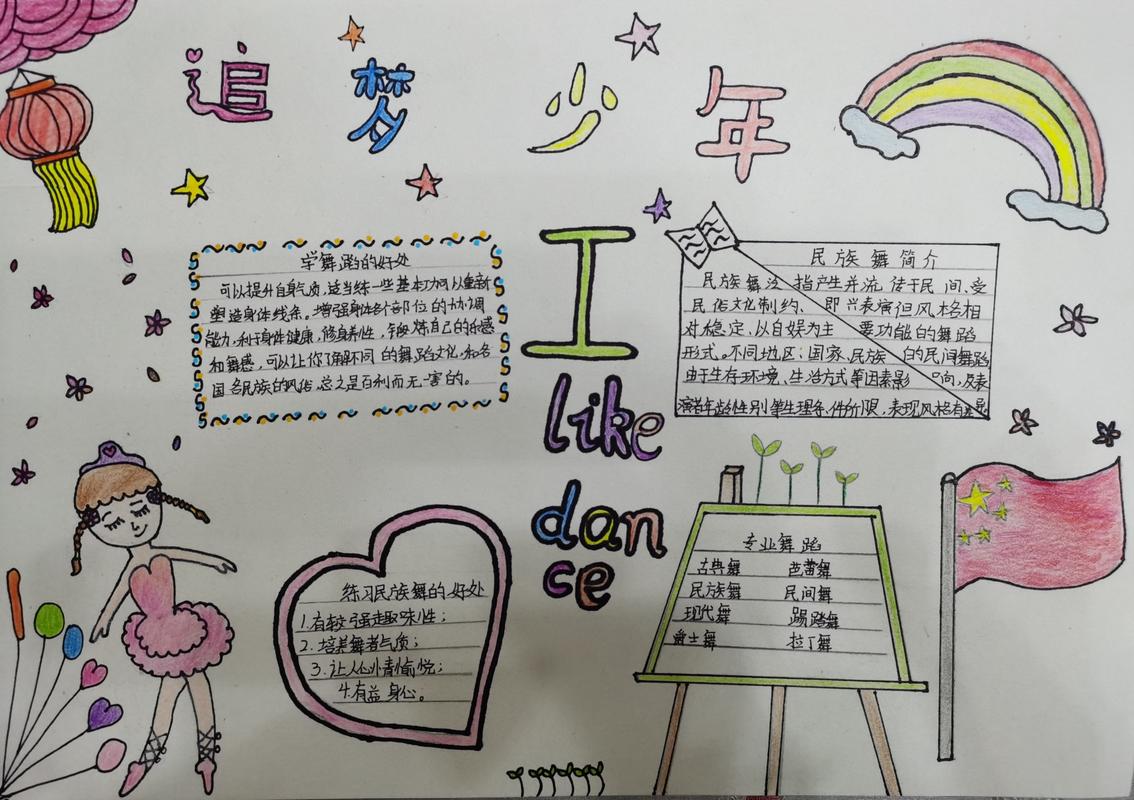 追梦少年
学舞蹈的好处
可以提升自身气质,适当练一些基本功可以重新
塑造身体线条,增强身体各个部位的协调
能力,利于身体健康,修身养性,锻炼自己的乐感
和舞感,可以让你了解不同的舞蹈文化,和各
国各民族的风俗,总之是百利而无一害的。
I
like
dan
ce
民族舞简介
民族舞泛指产生并流传于民间、受
民俗文化制约、即兴表演但风格相
对稳定、以自娱为主要功能的舞蹈
形式。不同地区、国家、民族的民间舞蹈
由于生存环境、生活方式等因素影响,及表
演者年龄性别等生理条件所限,表现风格有差
练习民族舞的好处
1.有较强趣味性;
2.培养舞者气质;
3.让人心情愉悦;
4.有益身心。
专业舞蹈
古典舞 芭蕾舞
民族舞 民间舞
现代舞 踢踏舞
爵士舞 拉丁舞